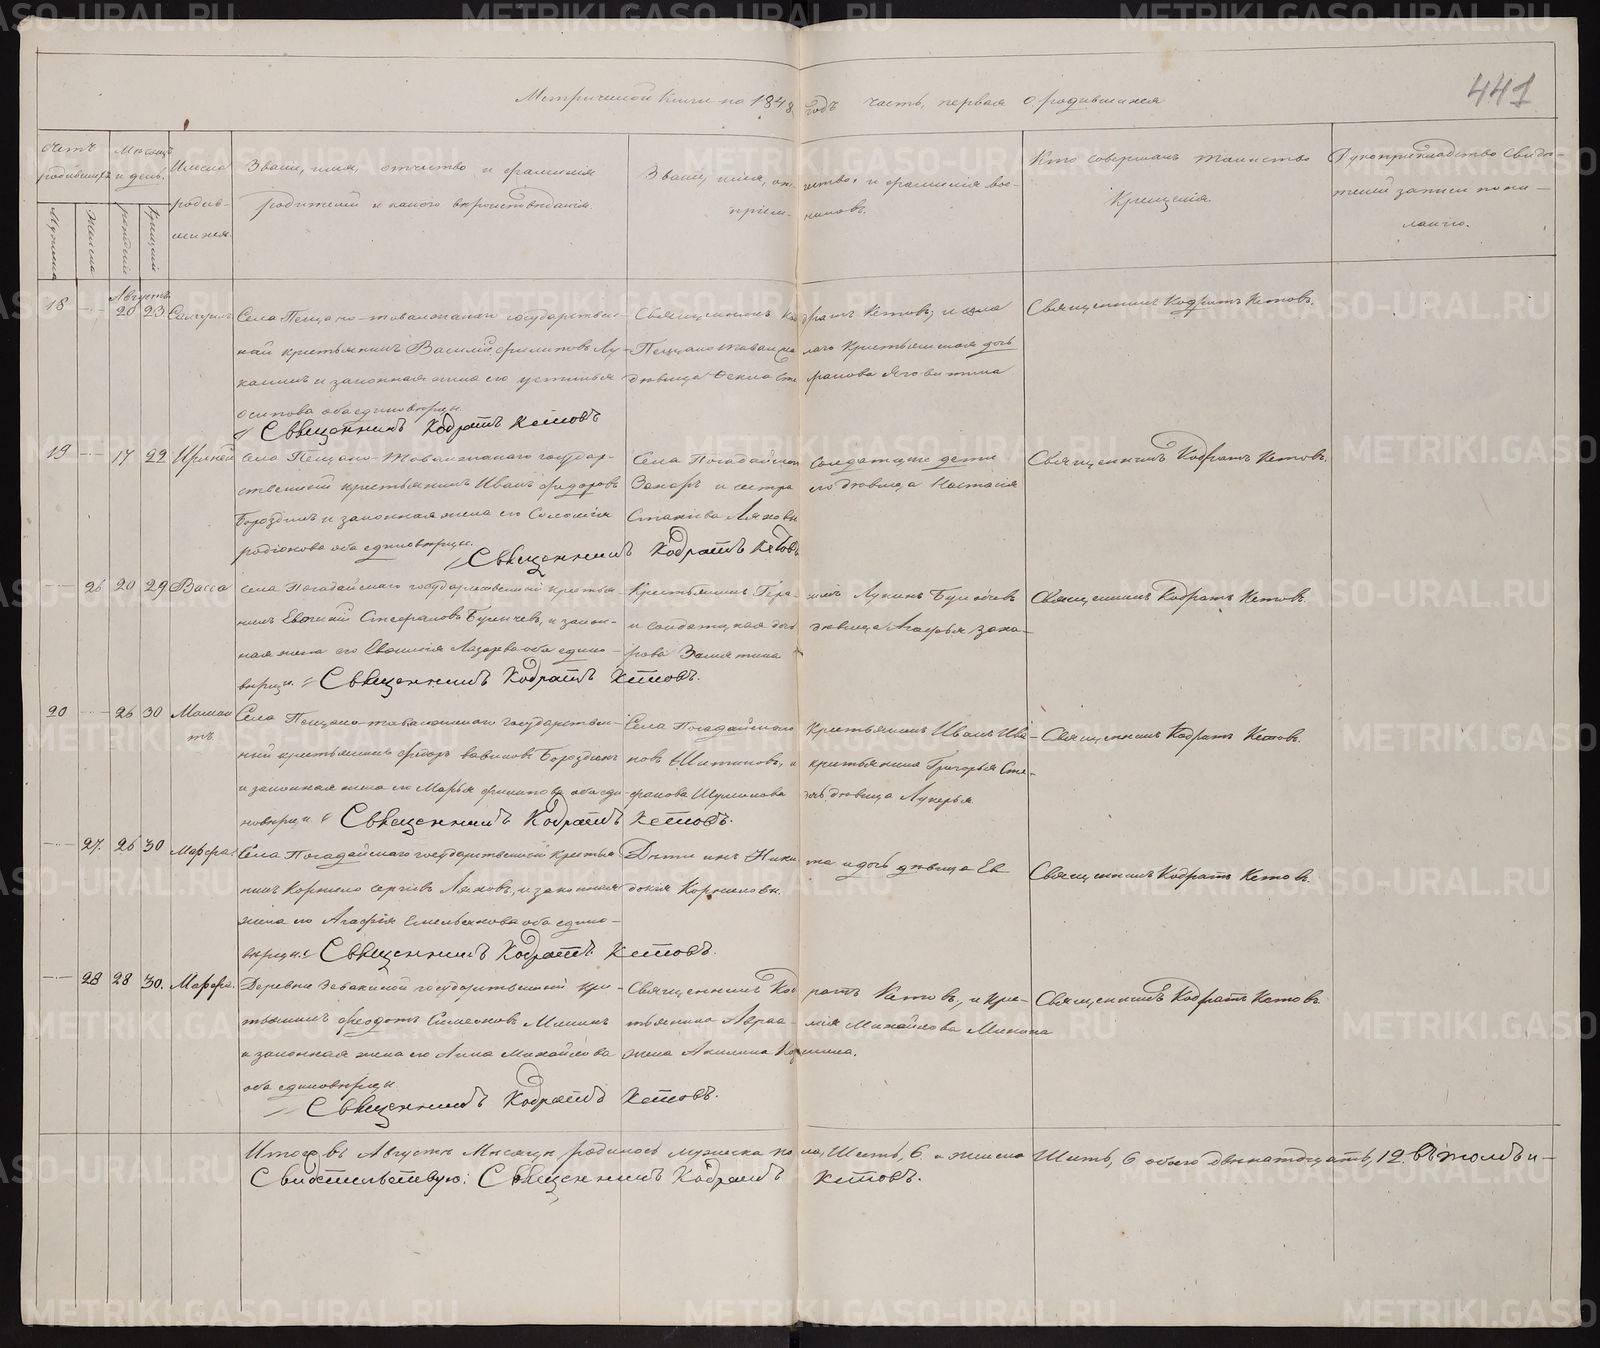 441
Метрической книги на 1848 годъ часть, первая о родившихся
Счетъ родившихся
Мужеска
Женска
Мѣсяцъ и день.
рожденія
Крещенія
Имена родив-
шихся.
Званіе, имя, отчество и фамилія
родителей и какого вѣроисповѣданія.
Званіе, имя, отчество, и фамилія вос-
пріем-никовъ.
Кто совершалъ таинство
Крещенія.
Рукоприкладство свидѣ-
телей записи по же-
ланію.
Августъ
18 - 20 23
Села Пещано-таволжанаго государствен-
ный крестьянинъ Василій Филиповъ Лу-
кашинъ и законная жена его устинья
осипова оба единовѣрцы.
Священникъ Кодратъ Кетовъ
Священникъ Кодратъ Кетовъ, и села
Пещанотавалжанаго Крестьянская дочь
дѣвица Фекла
Священникъ Кодратъ Кетовъ.
19 - 17 22 Ириней
Села Пещано-Таволжанаго государ-
ственный крестьянинъ Иванъ Федоровъ
Бороздинъ и законная жена его Соломія
родіонова оба единовѣрцы.
Священникъ Кодратъ Кетовъ
Села Погадайскаго солдатскіе дети
Захаръ и сестра его дѣвица Настасія
Ляховы
Священникъ Кодратъ Кетовъ.
- 26 20 29 Васса
села Погадайскаго государственный крестья-
нинъ Евгений Стефановъ и закон-
ная жена его Лазарева оба едино-
вѣрцы. Священникъ Кодратъ Кетовъ.
Крестьянинъ Гера-симъ Лукинъ
и солдатская дочь дѣвица Агафья заха-
рова Замятина
Священникъ Кодратъ Кетовъ.
20 - 26 30
Села Пещано-таволжанскаго государствен-
ный крестьянинъ Федоръ вавиловъ Бороздинъ
и законная жена его Марья филипова оба еди-
новѣрцы. Священникъ Кодратъ Кетовъ.
Села Погадайскаго Крестьянинъ Иванъ Ива-
новъ Шитиковъ, и крестьянина Григорья Сте-
фанова Шумилова дочь дѣвица Лукерья
Священникъ Кодратъ Кетовъ.
- 27. 26 30 Марфа.
Села Погадайскаго государственный крестья
нинъ Корнило сергіевъ Ляховъ, и законная
жена его Агафія Емельянова оба едино-
вѣрцы. Священникъ Кодратъ Кетовъ.
Дети ихъ Ники-та и дочь дѣвица Ев
докія Корниловы.
Священникъ Кодратъ Кетовъ.
- 28 28 30. Марфа.
Деревни Зевакиной государственный кре-
стьянинъ Феодотъ Симеоновъ Мининъ
и законная жена его Анна Михайлова
оба единовѣрцы.
Священникъ Кодратъ Кетовъ.
Священникъ Кодратъ Кетовъ, и кре-
стьянина Авраамія Михайлова Минина
жена Акилина
Священникъ Кодратъ Кетовъ
Итого въ Августѣ Месяцѣ родилось мужеска пола, Шесть, 6 и женска Шесть, 6 обоего двенатцать, 12. Въ томъ и-
Свидетельствую: Священникъ Кодратъ Кетовъ.
METRIKI.GASO-URAL.RU